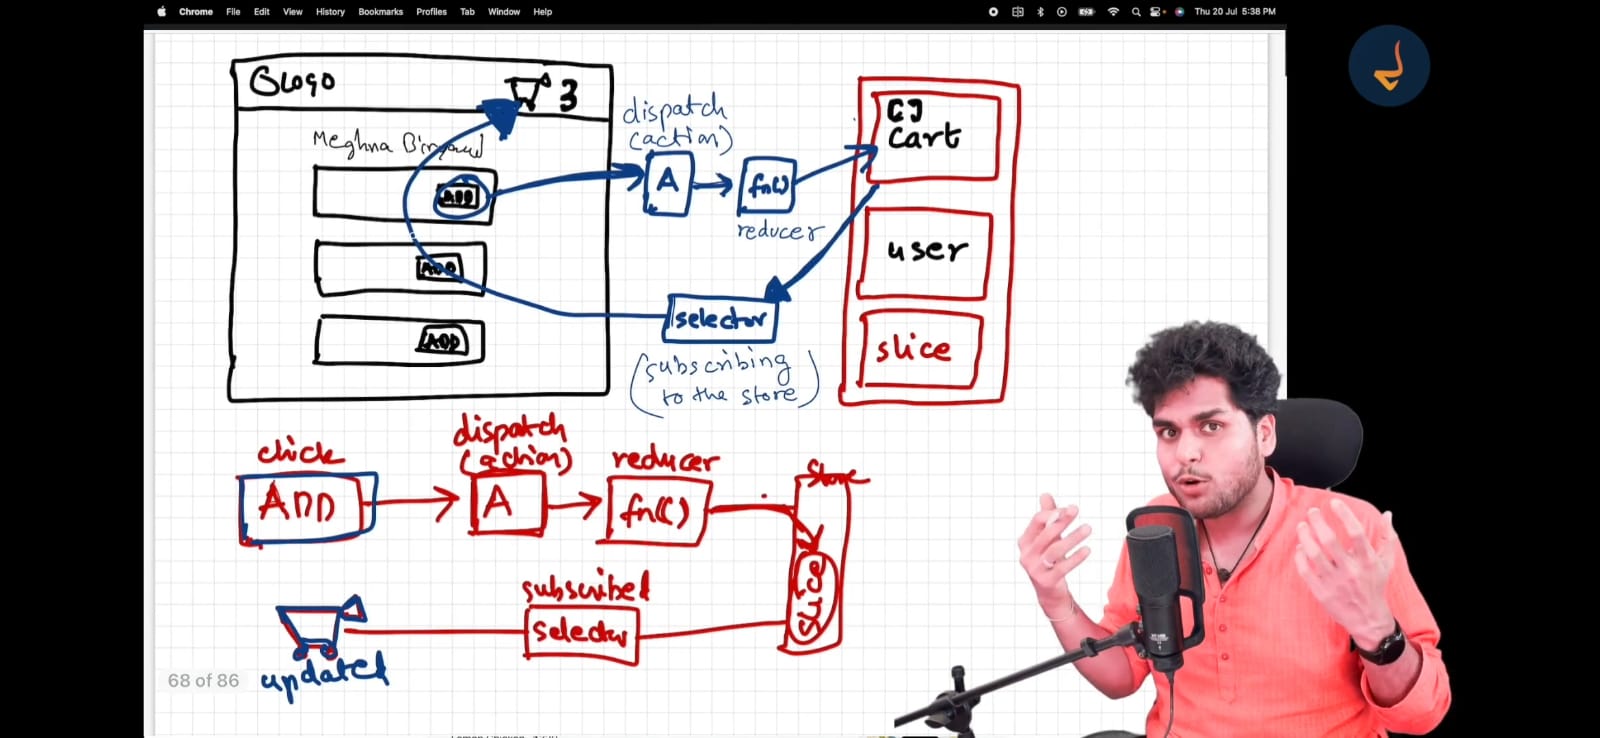 Chrome File Edit View History Bookmarks Profiles Tab Window Help
Thu 20 Jul 5:38 PM
Logo
3
Meghna
ADD
ADD
ADD
dispatch
(action)
A
fn()
reducer
selector
(subscribing
to the store)
cart
user
slice
click
ADD
dispatch
(action)
A
reducer
fn()
Store
slice
subscribed
selector
updated
68 of 86